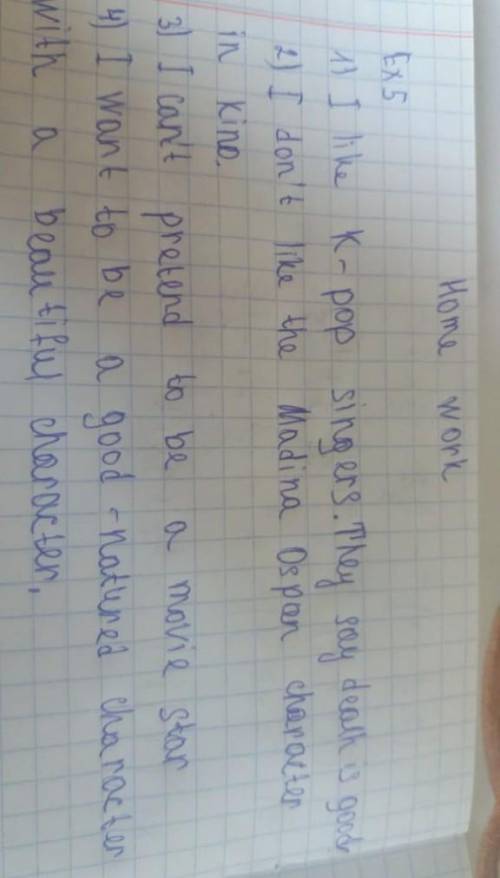 Home work
Ex 5
1) I like K-pop singers. They say death is good
2) I don't like the Madina Ospan character
in kino.
3) I can't pretend to be a movie star
4) I want to be a good-natured character
with a beautiful character,